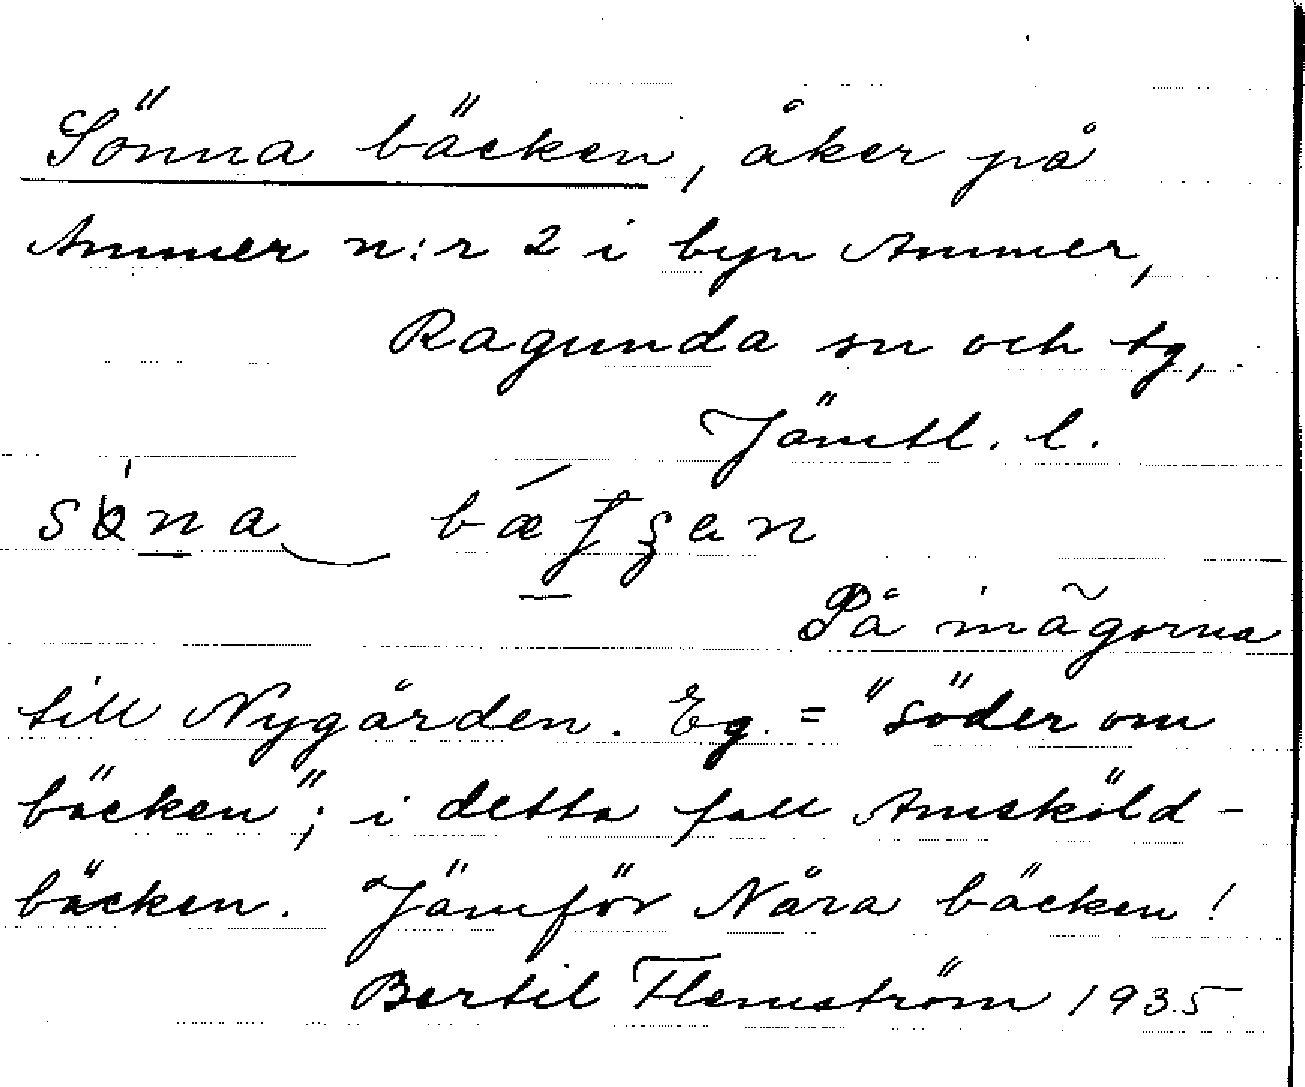 Sönna bäcken, åker på
Ammer n:r 2 i byn Ammer,
Ragunda sn och tg,
Jämtl. l.
På inägorna
till Nygården. Eg. = "söder om
bäcken"; i detta fall Amsköld-
bäcken. Jämför Nåra bäcken!
Bertil Flemström 1935